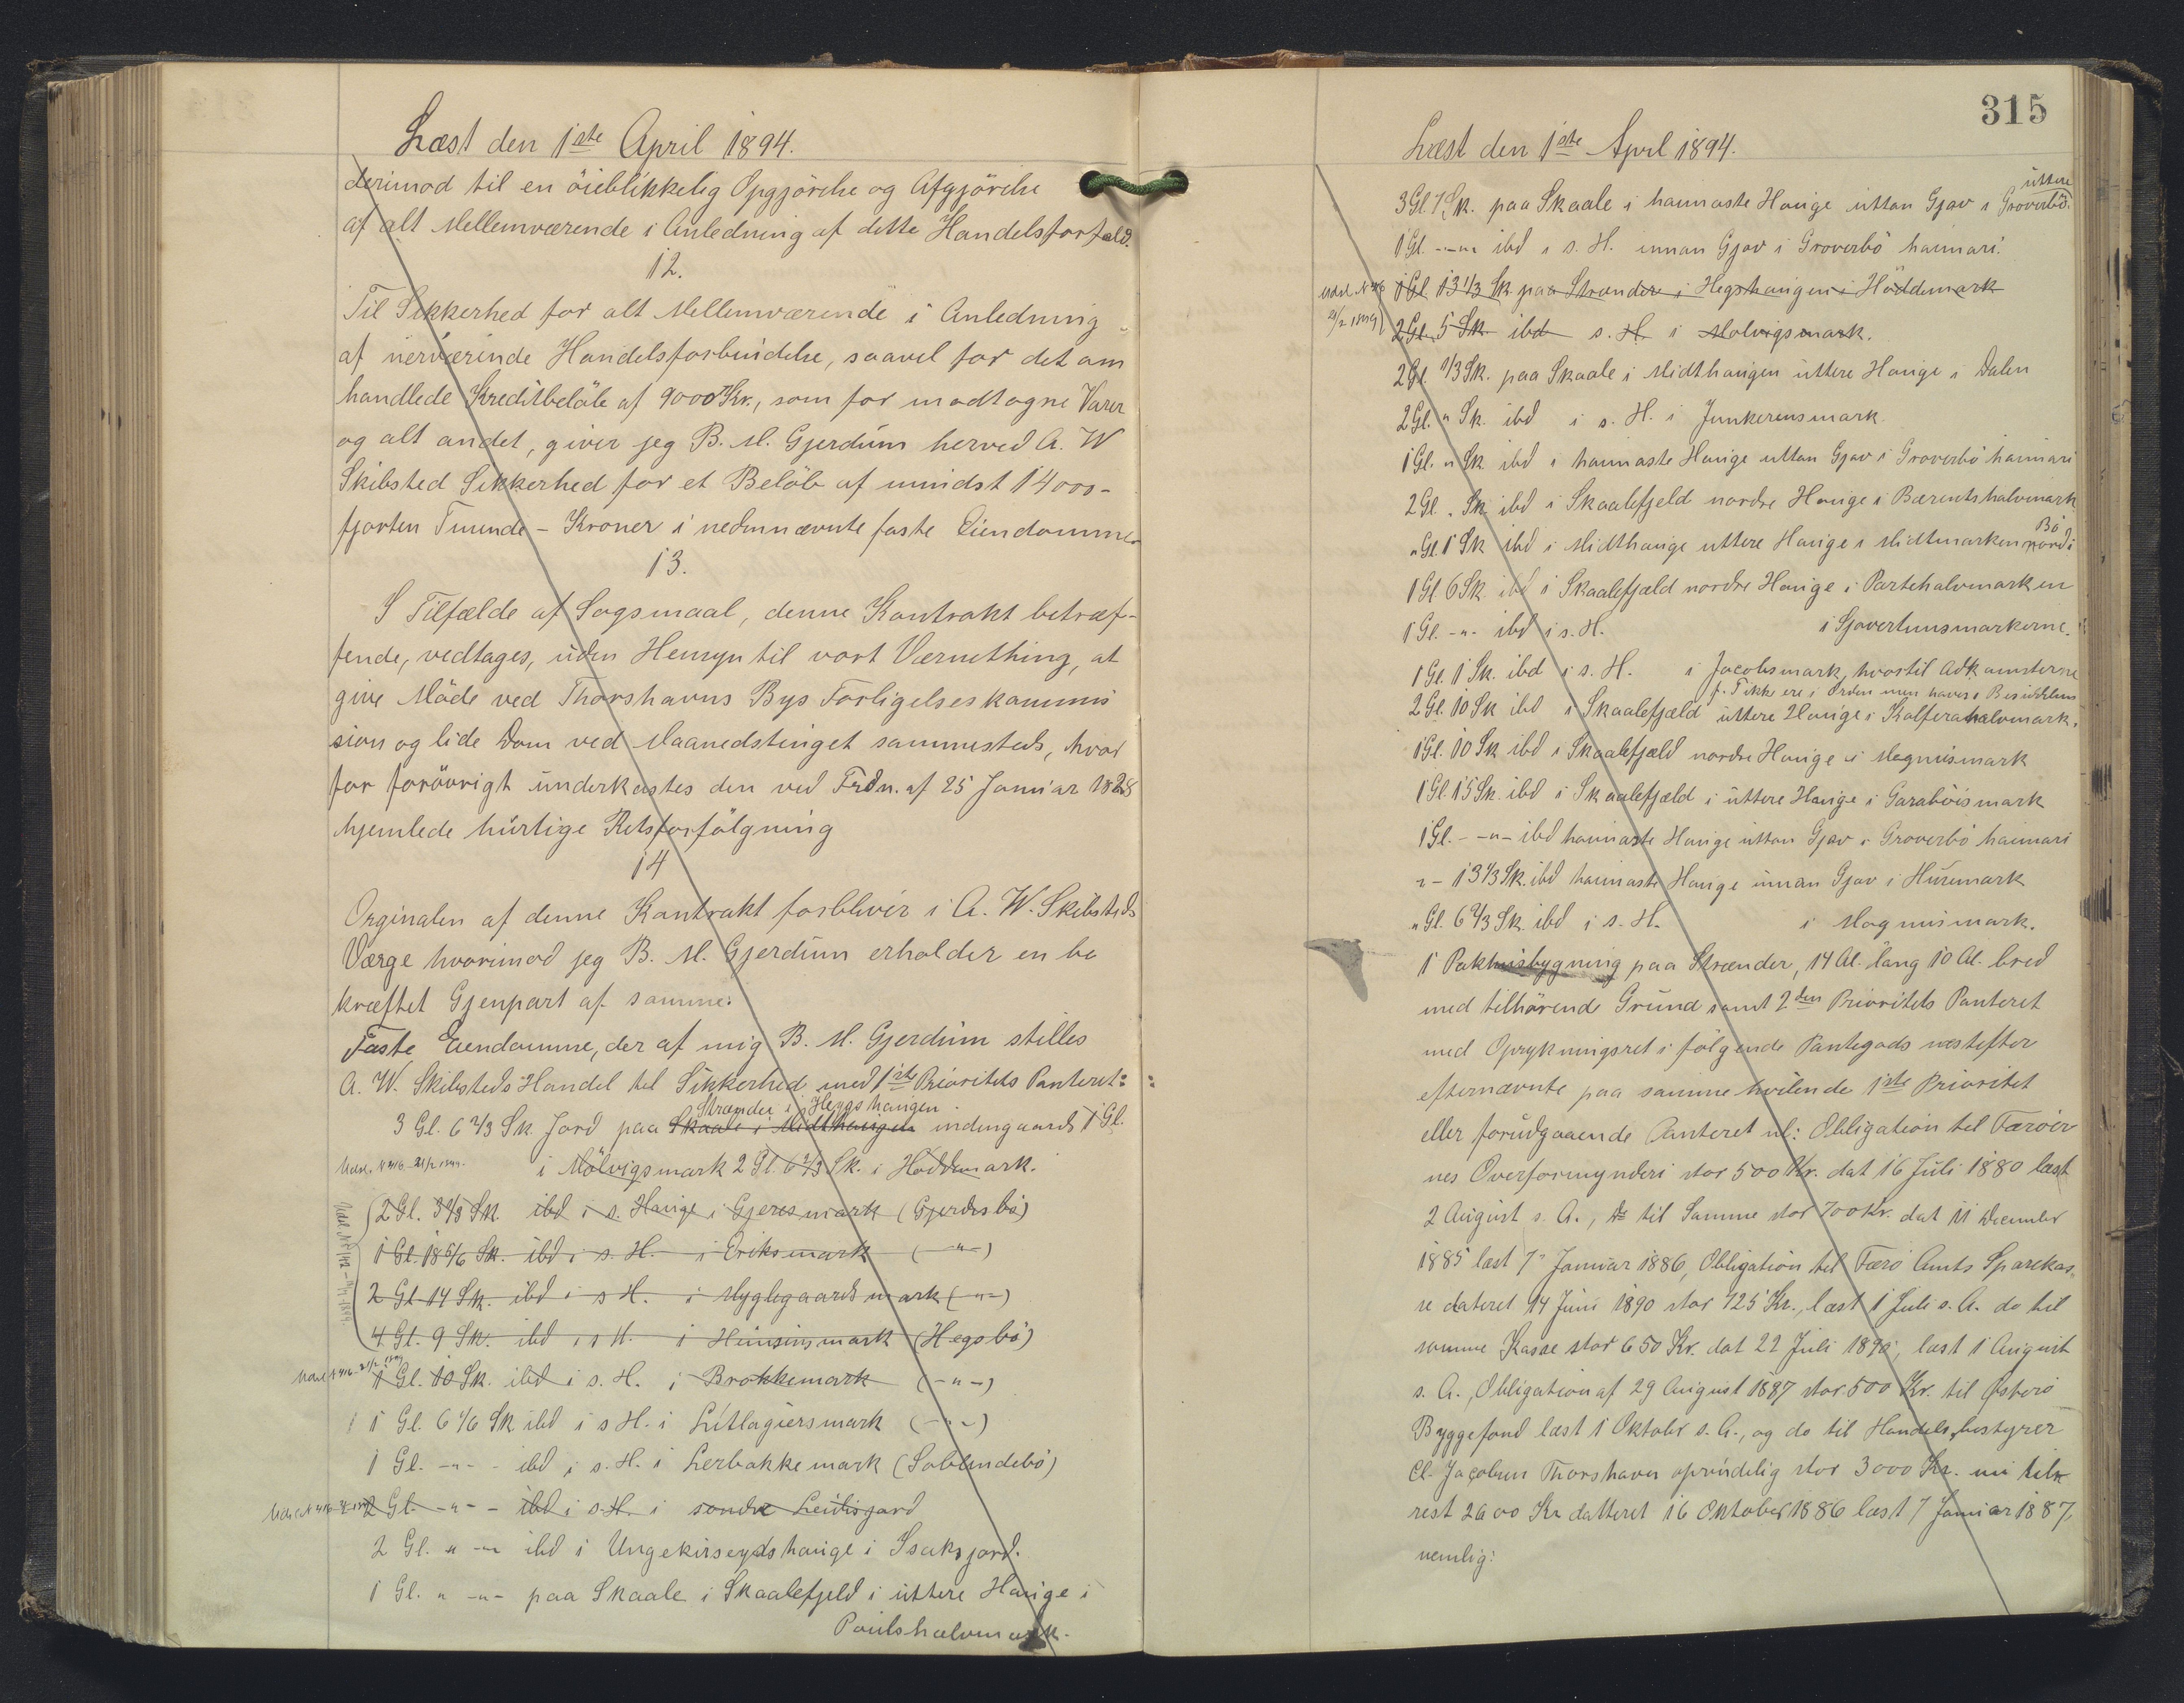 Læst den 1ste April 1894.
derimod til en öieblikkelig Opgjörelse og Afgjörelse
af alt Mellemværende i Anledning af dette Handelsforhold.
12.
Til Sikkerhed for alt Mellemværende i Anledning
af nærværende Handelsforbindelse, saavel for det om
handlede Kreditbelöb af 9000 Kr., som for modtagne Varer
og alt andet, giver jeg B. M. Gjerdum herved A. W
Skibsted Sikkerhed for et Belöb af mindst 14000-
fjorten Tusinde - Kroner i nedennævnte faste Eiendomme
13.
I Tilfælde af Sagsmaal, denne Kontrakt betræf-
fende, vedtages, uden Hensyn til vort Værnething, at
give Möde ved Thorshavns Bys Forligelseskommis
sion og lide Dom ved Maanedstinget sammesteds, hvor
for forövrigt underkastes den ved Frdn. af 25 Januar 1828
hjemlede hurtige Retsforfölgning
14
Orginalen af denne Kontrakt forbliver i A. W. Skibsteds
Værge hvorimod jeg B. M. Gjerdum erholder en be
kræftet Gjenpart af samme.
Faste Eiendomme, der af mig B. M. Gjerdum stilles
A. W. Skibsteds Handel til Sikkerhed med 1ste Prioritets Panteret:
Strænder i Heygshaugen
3 Gl. 6 2/3 Sk. Jord paa Skaale i Midthaugen indengaards 1 Gl.
i Mölvigsmark 2 Gl. 6 2/3 Sk. i Höddemark.
2 Gl. 3 1/3 Sk. ibd i s. Hauge i Gjeresmark (Gjerdesbö)
1 Gl. 18 5/6 Sk. ibd i s. H. i Eriksmark (-"-)
2 Gl 14 Sk. ibd i s H. i Myglegaards mark (-"-)
4 Gl. 9 Sk. ibd i s H. i Húnsinsmark (Hegsbö)
1 Gl. 10 Sk. ibd i s. H. i Brokkemark (-"-)
1 Gl. 6 1/6 Sk ibd i s H. i Litlagiersmark (-"-)
1 Gl. -"- - ibd i s. H. i Lerbakkemark
2 Gl. -"- - ibd i s. H. i söndre Leidisjord
2 Gl. " -" ibd i Ungekirseydshauge i Isaksjord.
1 Gl. " -"- paa Skaale i Skaalefjeld i uttere Hauge i
Poulshalvmark.
315
Læst den 1ste April 1894.
uttere
3 Gl. 7 Sk. paa Skaale i heimaste Hauge uttan Gjav i Groverbö.
1 Gl. -"- ibd i s. H. innan Gjov i Groverbö heimari.
1 Gl 13 1/3 Sk paa Strænder i Hegshaugen i Höddemark
2 Gl. 5 Sk. ibd s. H. i Molvigsmark.
2 Gl. 1/3 Sk. paa Skaale i Midthaugen uttere Hauge i Dalen
2 Gl. " Sk. ibd i s. H. i Junkerensmark.
1 Gl. " Sk ibd i heimaste Hauge uttan Gjav i Groverbö heimari
2 Gl. " Sk ibd i Skaalefjeld nordre Hauge i Bærentshalvmark
Bö
" Gl. 1 Sk ibd i Midthauge uttere Hauge i Midtmarken nord i
1 Gl 6 Sk ibd i Skaalefjeld nordre Hauge i Partehalvmarken
1 Gl. -"- ibd i s. H. i Sjovertunsmarkerne.
1 Gl. 1 Sk. ibd i s. H. i Jacobsmark, hvortil Adkomsterne
p. T ikke ere i Orden men haves i Besiddelses
2 Gl. 10 Sk ibd i Skaalefjæld uttere Hauge i Kalferahalvmark.
1 Gl. 10 Sk ibd i Skaalefjæld nordre Hauge i Magnusmark
1 Gl 15 Sk. ibd i Skaalefjæld i uttere Hauge i Garaböismark
1 Gl. - -"- ibd heimaste Hauge uttan Gjov i Groverbö heimari
" - 13 1/3 Sk. ibd heimaste Hauge innan Gjov i Húsemark
" Gl. 6 2/3 Sk. ibd i s. H. i Magnusmark.
1 Pakhusbygning paa Strænder, 14 Al. lang 10 Al. bred
med tilhörende Grund samt 2den Prioritets Panteret
med Oprykningsret i fölgende Pantegods næstefter
efternævnte paa samme hvilende 1ste Prioritet
eller forudgaaende Panteret nl: Obligation til Færöer
nes Overformynderi stor 500 Kr. dat 16 Juli 1880 læst
2 August s. A., Do til Samme stor 700 Kr. dat 11 December
1885 læst 7" Januar 1886, Obligation til Færö Amts Sparekas,
se dateret 14 Juni 1890 stor 725 Kr., læst 1 Juli s. A. do til
samme Kasse stor 650 Kr. dat 22 Juli 1890, læst 1 August
s. A., Obligation af 29 August 1887 stor 500 Kr. til Østerö
Byggefond læst 1 Oktober s. A., og do til Handelsbestyrer
Cl. Jacobsen Thorshavn oprindelig stor 3000 Kr. nu
rest 2600 Kr datteret 16 Oktober 1886 læst 7 Januar 1887,
nemlig: